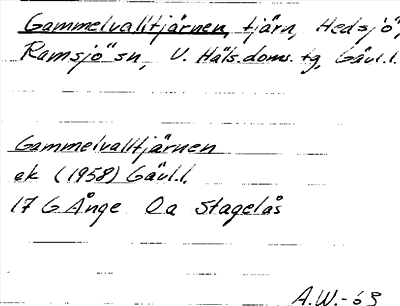 Gammelvalltjärnen, tjärn, Hedsjö,
Ramsjö sn, V. Häls.doms.tg, Gävl.l.
Gammelvalltjärnen
ek (1958) Gävl.l.
17 G Ånge Oa Stagelås
A.W.-63